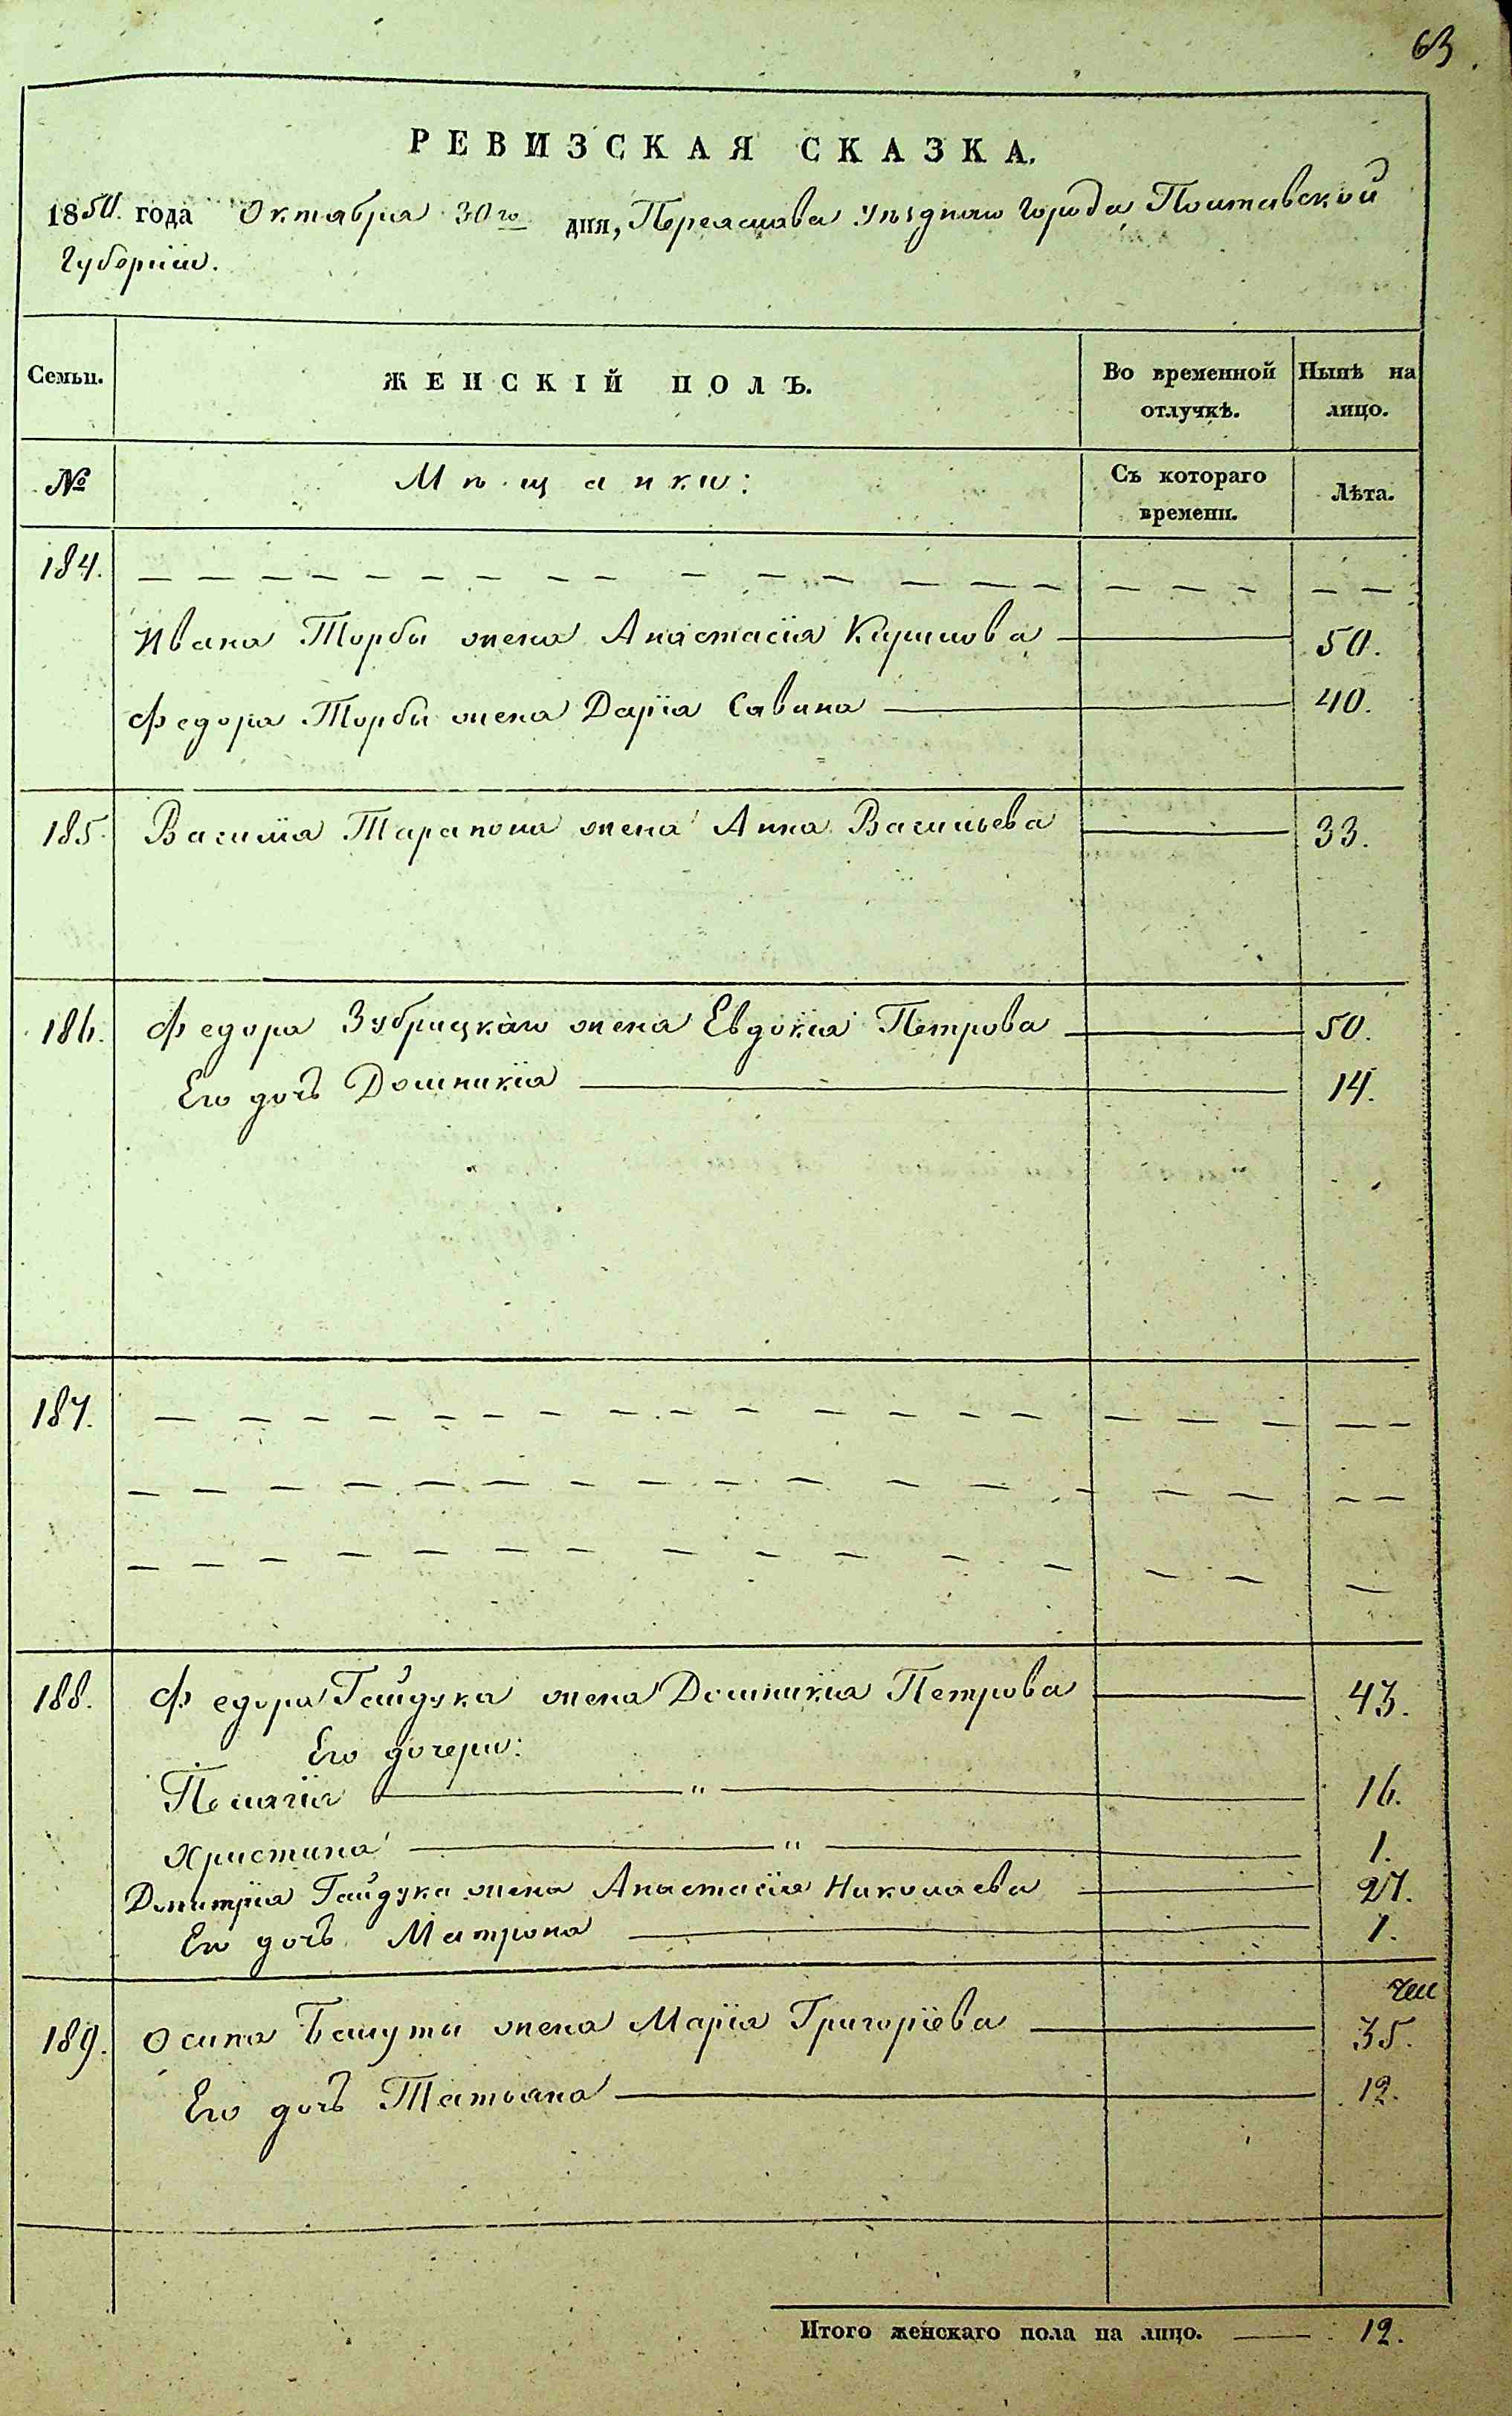 63.
РЕВИЗСКАЯ СКАЗКА.
1850. года Октября 30го дня, Переяслава уѣзднаго города Полтавской
Губерніи.
Семьи. ЖЕНСКІЙ ПОЛЪ. Во временной отлучкѣ. Нынѣ на лицо.
№ Мѣщанки: Съ котораго времени. Лѣта.
184. — — — — — — — — — — — — — — — — — — — —
Ивана Торбы жена Анастасія Кирилова — 50.
Федора Торбы жена Дарія Савина — 40.
185. Василія жена Анна Васильева — 33.
186. Федора Зубрицкаго жена Евдокія Петрова — 50.
Его дочь Домникія — 14.
187. — — — — — — — — — — — — — — — — — — — —
— — — — — — — — — — — — — — — — —
— — — — — — — — — — — — — — —
188. Федора Гайдука жена Домникія Петрова — 43.
Его дочери:
Пелагія — " — 16.
Христина — " — 1.
Дмитрія Гайдука жена Анастасія Николаева — 27.
Его дочь Матрона — 1.
189. Осипа жена Марія Григоріева — 35.
Его дочь Татьяна — 12.
Итого женскаго пола на лицо. — 12.